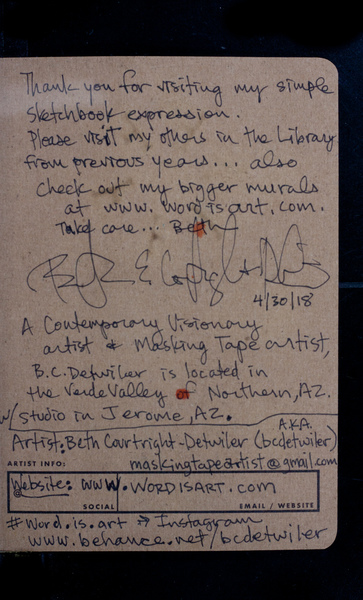 Thank you for visiting my simple
sketchbook expression.
Please visit my others in the Library
from previous years... also
check out my bigger murals
at www.wordisart.com.
Take care... Beth
4/30/18
A Contemporary Visionary
artist & Masking Tape artist,
B.C. Detwiler is located in
the Verde Valley of Northern, AZ.
w/ studio in Jerome, AZ.
A.K.A.
Artist: Beth Courtright-Detwiler (bcdetwiler)
ARTIST INFO: maskingtapeartist@gmail.com
Website: www.WORDISART.COM
SOCIAL EMAIL / WEBSITE
#word.is.art → Instagram
www.behance.net/bcdetwiler